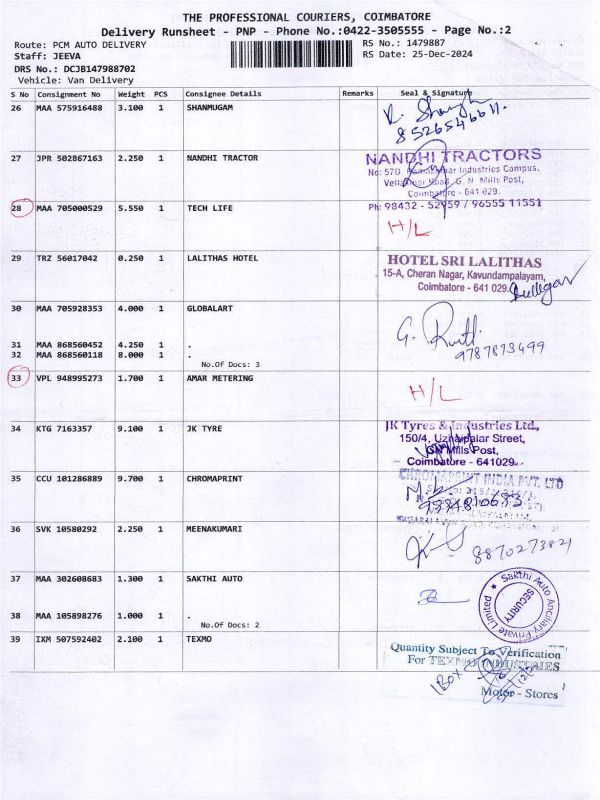 THE PROFESSIONAL COURIERS, COIMBATORE
Delivery Runsheet - PNP - Phone No.:0422-3505555 - Page No.:2
Route: PCM AUTO DELIVERY
RS No.: 1479887
Staff: JEEVA
RS Date: 25-Dec-2024
DRS No.: DCJB147988702
Vehicle: Van Delivery
S No Consignment No Weight PCS Consignee Details Remarks Seal & Signature
26 MAA 575916488 3.100 1 SHANMUGAM
8526546611.
27 JPR 502867163 2.250 1 NANDHI TRACTOR
NANDHI TRACTORS
Industries Campus,
Road, G. N. Mills Post,
Coimbatore - 641 029.
Ph: 98432 - 52959 / 96555 11551
28 MAA 705000529 5.550 1 TECH LIFE
H/L
29 TRZ 56017042 0.250 1 LALITHAS HOTEL
HOTEL SRI LALITHAS
15-A, Cheran Nagar, Kavundampalayam,
Coimbatore - 641 029.
30 MAA 705928353 4.000 1 GLOBALART
31 MAA 868560452 4.250 1 .
32 MAA 868560118 8.000 1 .
No.Of Docs: 3
33 VPL 948995273 1.700 1 AMAR METERING
H/L
34 KTG 7163357 9.100 1 JK TYRE
JK Tyres & Industries Ltd.,
150/4, Uzhaipalar Street,
GN Mills Post,
Coimbatore - 641029.
35 CCU 101286889 9.700 1 CHROMAPRINT
CHROMAPRINT INDIA PVT. LTD
36 SVK 10580292 2.250 1 MEENAKUMARI
8870273821
37 MAA 302608683 1.300 1 SAKTHI AUTO
Sakthi Auto Ancillary Private Limited
SECURITY
38 MAA 105898276 1.000 1 .
No.Of Docs: 2
39 IXM 507592402 2.100 1 TEXMO
Quantity Subject To Verification
For TEXMO INDUSTRIES
1 Box
Motor - Stores